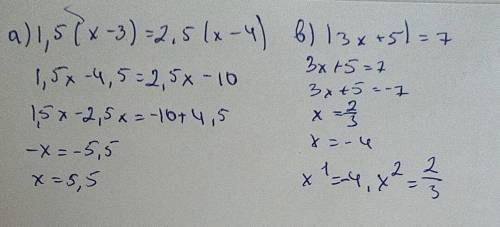 а) 1,5(x-3)=2,5(x-4)
1,5x-4,5=2,5x-10
1,5x-2,5x=-10+4,5
-x=-5,5
x=5,5
в) |3x+5|=7
3x+5=7
3x+5=-7
x=2/3
x=-4
x¹=-4, x²=2/3